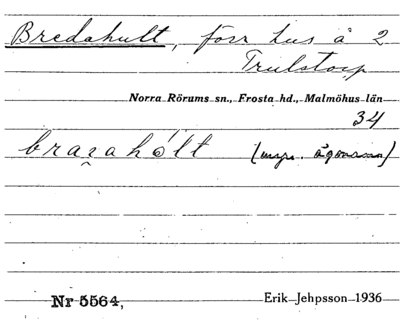 Bredahult, förr hus å 2
Trulstorp
Norra Rörums sn., Frosta hd., Malmöhus län
34
braꝛahólt (myr. ägonamn)
Nr 5564, Erik Jehpsson 1936